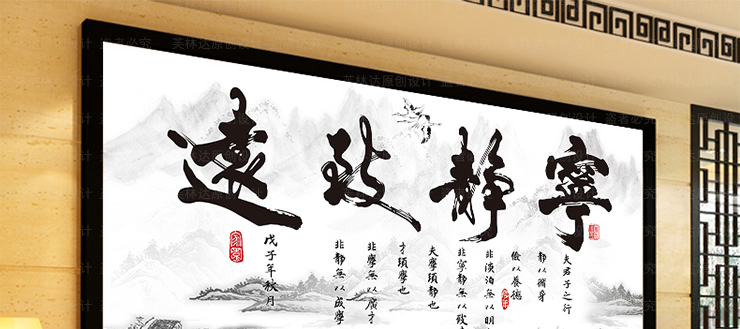 寧靜致遠
夫君子之行
靜以脩身
儉以養德
非淡泊無以明
非寧靜無以致
夫學須靜也
才須學也
非學無以廣才
非靜無以成學
戊子年秋月
芙林达原创设计 盗者必究